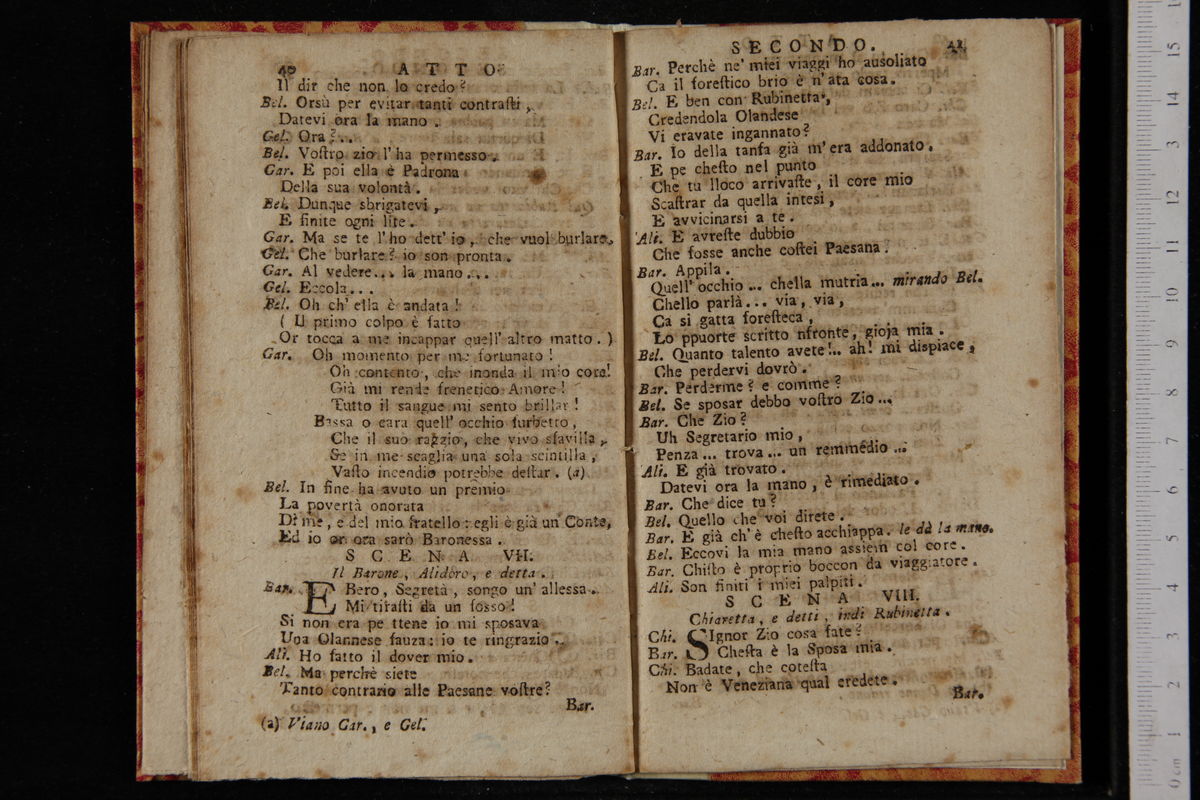 40 ATTO
Il dir che non lo credo?
Bel. Orsù per evitar tanti contrasti,
Datevi ora la mano.
Gel. Ora?...
Bel. Vostro zio l'ha permesso.
Gar. E poi ella è Padrona
Della sua volontà.
Bel. Dunque sbrigatevi,
E finite ogni lite.
Gar. Ma se te l'ho dett' io, che vuol burlare.
Gel. Che burlare? io son pronta.
Gar. Al vedere... la mano...
Gel. Eccola...
Bel. Oh ch' ella è andata!
( Il primo colpo è fatto
Or tocca a me incappar quell' altro matto. )
Gar. Oh momento per me fortunato!
Oh contento, che inonda il mio core!
Già mi rende frenetico Amore!
Tutto il sangue mi sento brillar!
Bassa o cara quell' occhio furbetto,
Che il suo raggio, che vivo sfavilla,
Se in me scaglia una sola scintilla,
Vasto incendio potrebbe destar. (a)
Bel. In fine ha avuto un premio
La povertà onorata
Di me, e del mio fratello: egli è già un Conte,
Ed io or ora sarò Baronessa.
SCENA VII.
Il Barone, Alidoro, e detta.
Bar. EBero, Segretà, songo un' allessa.
Mi tirasti da un fosso!
Si non era pe ttene io mi sposava
Una Olannese fauza: io te ringrazio.
Ali. Ho fatto il dover mio.
Bel. Ma perchè siete
Tanto contrario alle Paesane vostre?
Bar.
(a) Viano Gar., e Gel.
SECONDO. 41
Bar. Perchè ne' miei viaggi ho ausoliato
Ca il forestico brio è n'ata cosa.
Bel. E ben con Rubinetta,
Credendola Olandese
Vi eravate ingannato?
Bar. Io della tanfa già m'era addonato.
E pe chesto nel punto
Che tu lloco arrivaste, il core mio
Scastrar da quella intesi,
E avvicinarsi a te.
Ali. E avreste dubbio
Che fosse anche costei Paesana?
Bar. Appila.
Quell' occhio... chella mutria... mirando Bel.
Chello parlà... via, via,
Ca si gatta foresteca,
Lo ppuorte scritto nfronte, gioja mia.
Bel. Quanto talento avete!.. ah! mi dispiace,
Che perdervi dovrò.
Bar. Perderme? e comme?
Bel. Se sposar debbo vostro Zio...
Bar. Che Zio?
Uh Segretario mio,
Penza... trova... un remmedio...
Ali. E già trovato.
Datevi ora la mano, è rimediato.
Bar. Che dice tu?
Bel. Quello che voi direte.
Bar. E già ch'è chesto acchiappa. le dà la mano.
Bel. Eccovi la mia mano assiem col core.
Bar. Chisto è proprio boccon da viaggiatore.
Ali. Son finiti i miei palpiti.
SCENA VIII.
Chiaretta, e detti, indi Rubinetta.
Chi. SIgnor Zio cosa fate?
Bar. Chesta è la Sposa mia.
Chi. Badate, che cotesta
Non è Veneziana qual credete.
Bar.
15
14
3
12
11
10
9
8
7
6
5
4
3
2
1
0 cm